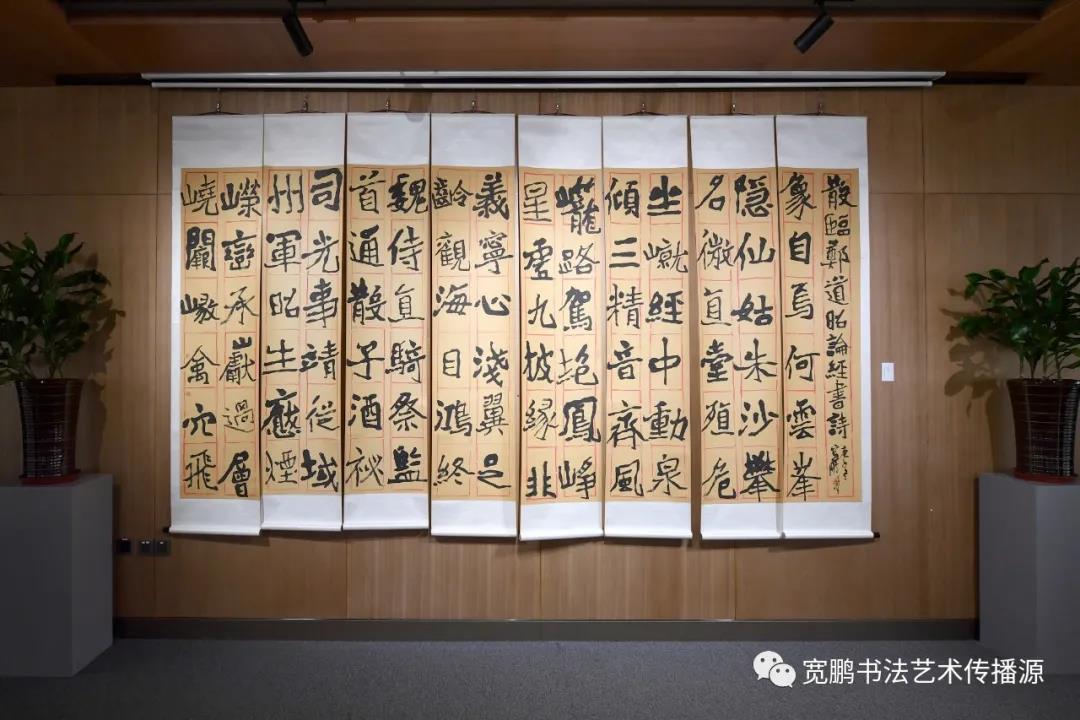 散臨鄭道昭論經書詩
象自焉何雲峯
隐仙姑朱沙攀
名微直堂殖危
坐巘經中動泉
傾三精音齊風
巃路駕鳳崢
星九披緣非
義寧心淺翼之
齡觀海目鴻終
魏侍直騎祭監
首通散子酒祕
司光事靖従域
州軍昭生應煙
嶸巒承巘過層
嶢禽穴飛
宽鹏书法艺术传播源